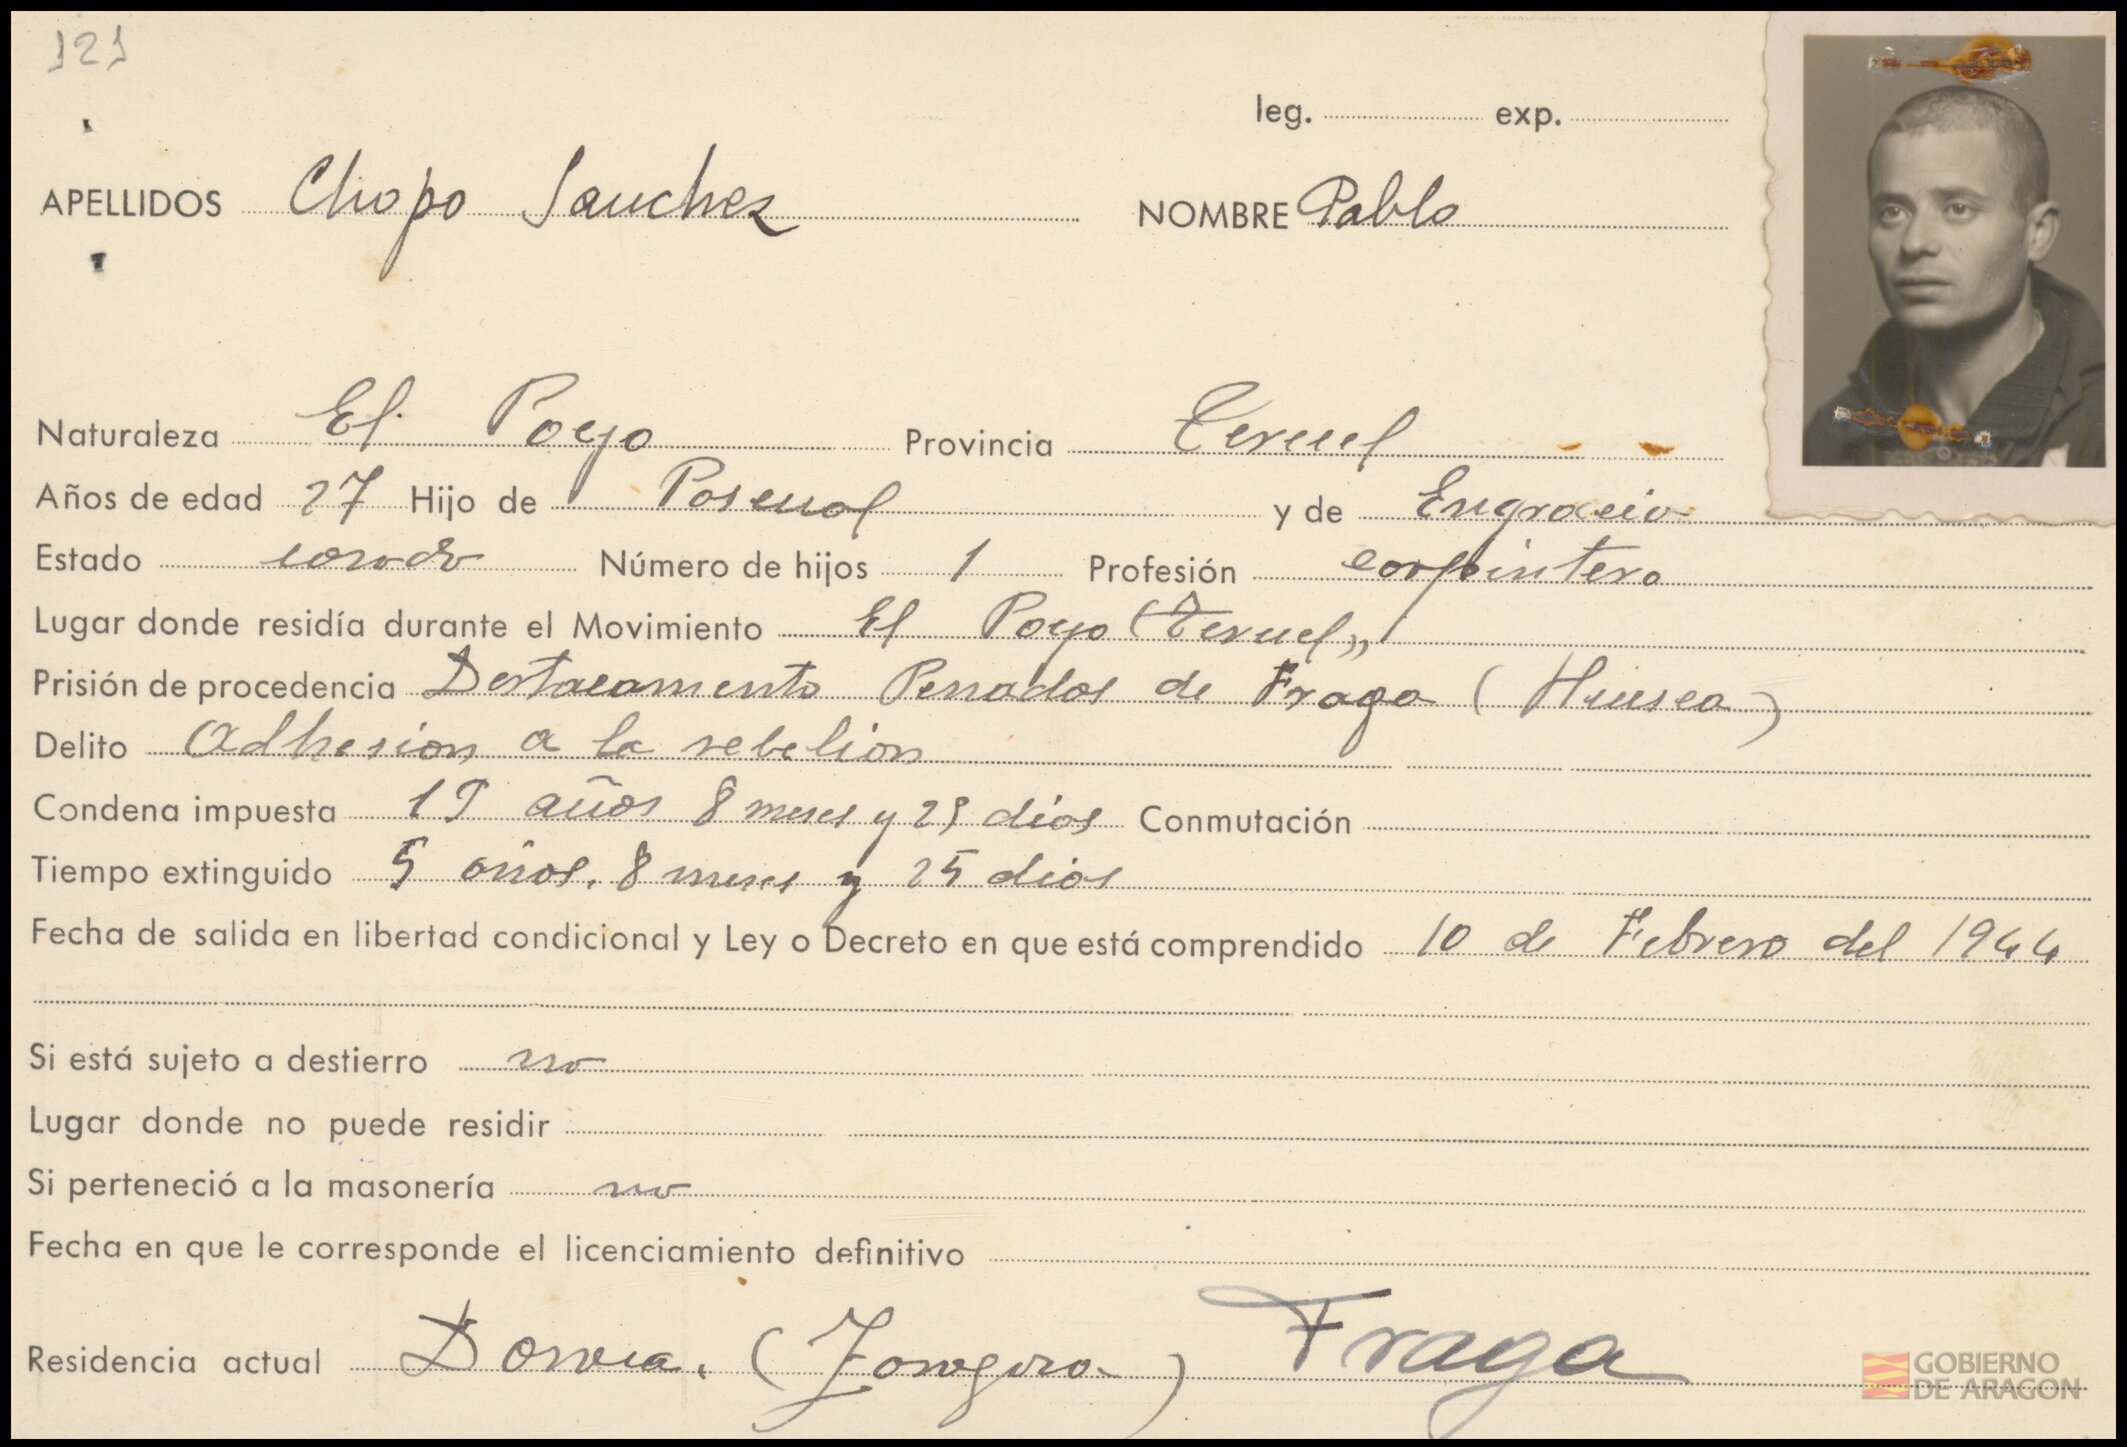 121
leg. exp.
APELLIDOS Chopo Sanchez NOMBRE Pablo
Naturaleza El Poyo Provincia Teruel
Años de edad 27 Hijo de Pascual y de Engracia
Estado casado Número de hijos 1 Profesión carpintero
Lugar donde residía durante el Movimiento El Poyo (Teruel)
Prisión de procedencia Destacamento Penados de Fraga (Huesca)
Delito Adhesion a la rebelion
Condena impuesta 19 años 8 meses y 29 dias Conmutación
Tiempo extinguido 5 años. 8 meses y 25 dias
Fecha de salida en libertad condicional y Ley o Decreto en que está comprendido 10 de Febrero del 1944
Si está sujeto a destierro no
Lugar donde no puede residir
Si perteneció a la masonería no
Fecha en que le corresponde el licenciamiento definitivo
Residencia actual (Zaragoza) Fraga
GOBIERNO
DE ARAGON